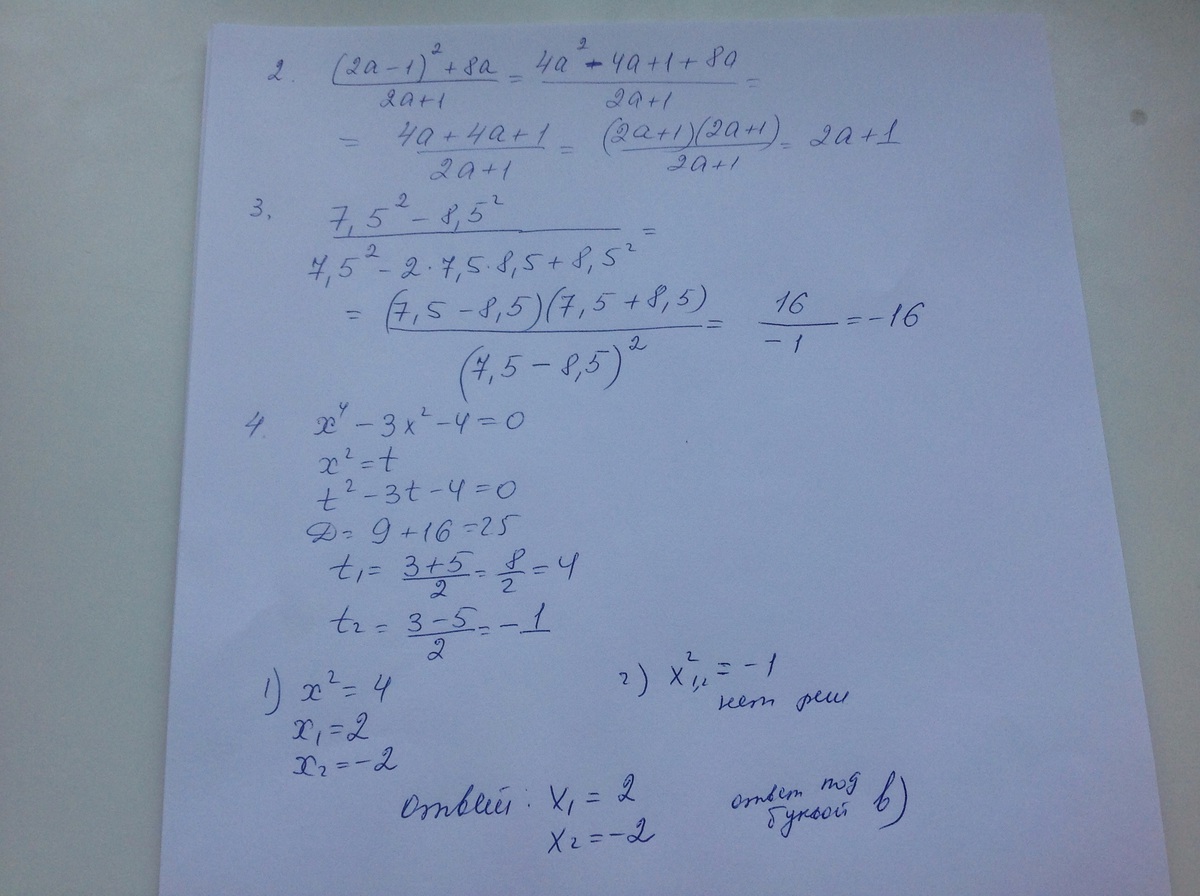 2. (2a-1)²+8a / 2a+1 = 4a²-4a+1+8a / 2a+1 =
= 4a+4a+1 / 2a+1 = (2a+1)(2a+1) / 2a+1 = 2a+1
3. 7,5² - 8,5² / 7,5² - 2·7,5·8,5+8,5² =
= (7,5-8,5)(7,5+8,5) / (7,5-8,5)² = 16 / -1 = -16
4. x⁴-3x²-4=0
x²=t
t²-3t-4=0
D= 9+16=25
t₁= 3+5 / 2 = 8 / 2 = 4
t₂= 3-5 / 2 = -1
1) x²=4 2) x²₁,₂ = -1
x₁=2 нет реш
x₂=-2
ответ: x₁=2 ответ под
x₂=-2 буквой в)